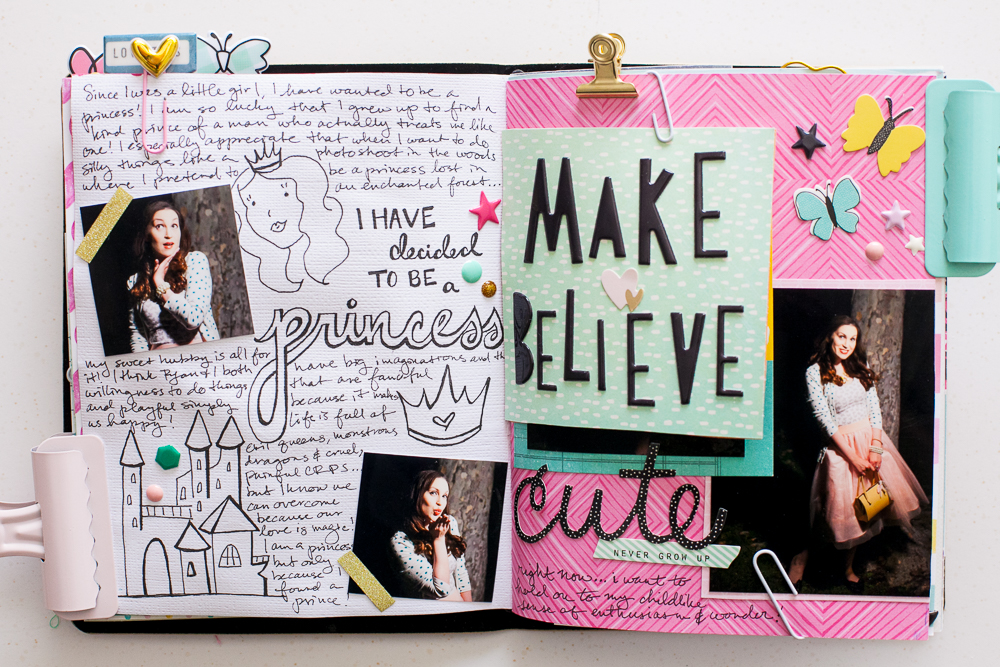 LO
Since I was a little girl, I have wanted to be a
princess! I am so lucky that I grew up to find a
kind prince of a man who actually treats me like
one! I especially appreciate that when I want to do
silly things like a photoshoot in the woods
where I pretend to be a princess lost in
an enchanted forest...
I HAVE
decided
TO BE a
princess
my sweet hubby is all for
it! I think Ryan & I both
have big imaginations and the
willingness to do things
that are fanciful
and playful simply
because it makes
us happy!
life is full of
evil queens, monstrous
dragons & cruel,
painful CRPS...
but I know we
can overcome
because our
love is magic!
I am a princess
but only
because I
found a
prince!
MAKE
BELIEVE
cute
NEVER GROW UP
right now... i want to
hold on to my childlike
sense of enthusiasm & wonder.